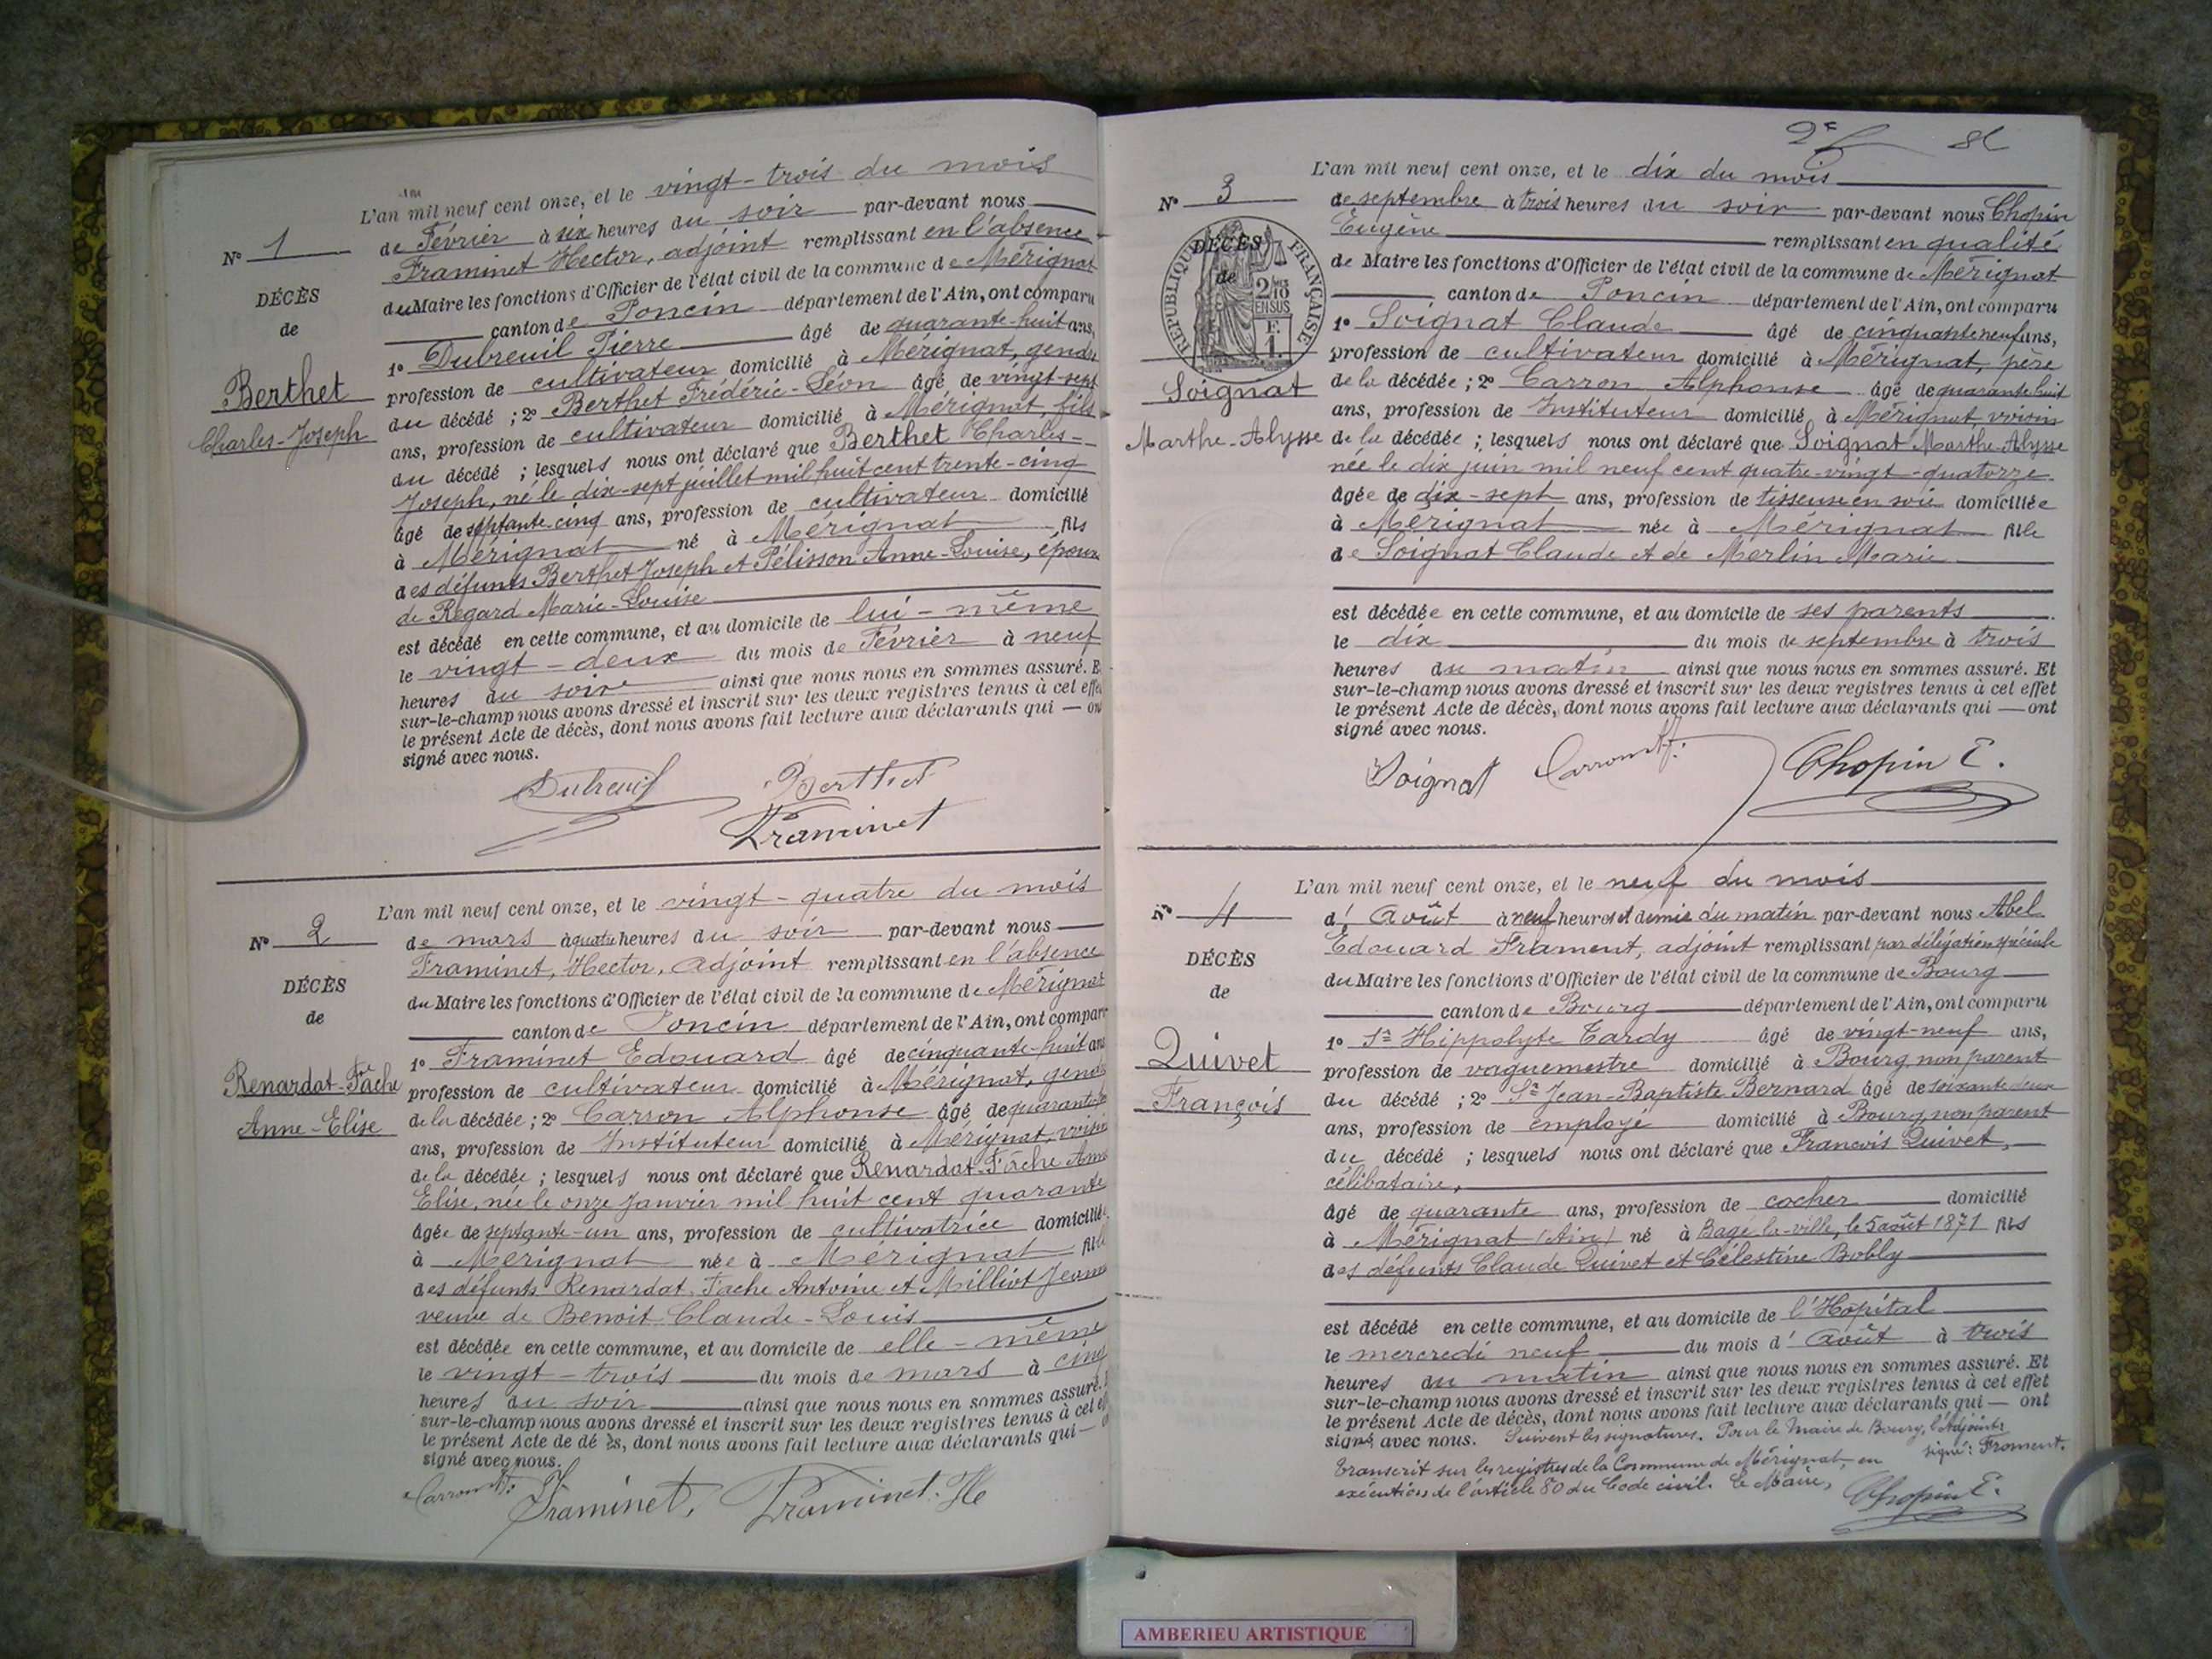 L'an mil neuf cent onze, et le vingt-trois du mois
de Février à six heures du soir par-devant nous
Framinet Hector, adjoint remplissant en l'absence
du Maire les fonctions d'Officier de l'état civil de la commune de Mérignat
canton de Poncin département de l'Ain, ont comparu
1º Dubreuil Pierre âgé de quarante-huit ans,
profession de cultivateur domicilié à Mérignat, gendre
du décédé ; 2º Berthet Frédéric-Léon âgé de vingt-sept
ans, profession de cultivateur domicilié à Mérignat, fils
du décédé ; lesquels nous ont déclaré que Berthet Charles-
Joseph, né le dix-sept juillet mil huit cent trente-cinq
âgé de septante-cinq ans, profession de cultivateur domicilié
à Mérignat né à Mérignat fils
des défunts Berthet Joseph et Pélisson Anne-Louise, époux
de Regard Marie-Louise
est décédé en cette commune, et au domicile de lui-même
le vingt-deux du mois de Février à neuf
heures du soir ainsi que nous nous en sommes assuré. E
sur-le-champ nous avons dressé et inscrit sur les deux registres tenus à cet effet
le présent Acte de décès, dont nous avons fait lecture aux déclarants qui — ont
signé avec nous.
Nº 1
DÉCÈS
de
Berthet
Charles-Joseph
Dubreuil Berthet
Framinet
L'an mil neuf cent onze, et le vingt-quatre du mois
de mars à quatre heures du soir par-devant nous
Framinet, Hector, adjoint remplissant en l'absence
du Maire les fonctions d'Officier de l'état civil de la commune de Mérignat
canton de Poncin département de l'Ain, ont comparu
1º Framinet Edouard âgé de cinquante-huit ans
profession de cultivateur domicilié à Mérignat, gendre
de la décédée ; 2º Carron Alphonse âgé de
ans, profession de Instituteur domicilié à Mérignat, voisin
de la décédée ; lesquels nous ont déclaré que Renardat-Fache Anne
Elise, née le onze Janvier mil huit cent quarante
âgée de septante-un ans, profession de cultivatrice domiciliée
à Mérignat née à Mérignat fille
des défunts Renardat-Fache Antoine et Milliot Jeanne
veuve de Benoit Claude-Louis
est décédée en cette commune, et au domicile de elle-même
le vingt-trois du mois de mars à cinq
heures du soir ainsi que nous nous en sommes assuré.
sur-le-champ nous avons dressé et inscrit sur les deux registres tenus à cet
le présent Acte de dé ès, dont nous avons fait lecture aux déclarants qui —
signé avec nous.
Nº 2
DÉCÈS
de
Renardat-Fache
Anne-Elise
Carron Framinet, Framinet. He
L'an mil neuf cent onze, et le dix du mois
de septembre à trois heures du soir par-devant nous Chopin
Eugène remplissant en qualité
de Maire les fonctions d'Officier de l'état civil de la commune de Mérignat
canton de Poncin département de l'Ain, ont comparu
1º Soignat Claude âgé de cinquante neuf ans,
profession de cultivateur domicilié à Mérignat, père
de la décédée ; 2º Carron Alphonse âgé de quarante huit
ans, profession de Instituteur domicilié à Mérignat, voisin
de la décédée ; lesquels nous ont déclaré que Soignat Marthe-Alysse
née le dix juin mil neuf cent quatre-vingt-quatorze
âgée de dix-sept ans, profession de tisseuse en soie domiciliée
à Mérignat née à Mérignat fille
de Soignat Claude et de Merlin Marie
est décédée en cette commune, et au domicile de ses parents
le dix du mois de septembre à trois
heures du matin ainsi que nous nous en sommes assuré. Et
sur-le-champ nous avons dressé et inscrit sur les deux registres tenus à cet effet
le présent Acte de décès, dont nous avons fait lecture aux déclarants qui — ont
signé avec nous.
Nº 3
DÉCÈS
de
RÉPUBLIQUE FRANÇAISE
2/10
EN SUS
F.
1.
Soignat
Marthe-Alysse
Soignat Carron Chopin E.
L'an mil neuf cent onze, et le neuf du mois
d'Août à neuf heures et demie du matin par-devant nous Abel
Edouard Frament, adjoint remplissant par délégation spéciale
du Maire les fonctions d'Officier de l'état civil de la commune de Bourg
canton de Bourg département de l'Ain, ont comparu
1º Sr Hippolyte Tardy âgé de vingt-neuf ans,
profession de vaguemestre domicilié à Bourg non parent
du décédé ; 2º Sr Jean-Baptiste Bernard âgé de soixante deux
ans, profession de employé domicilié à Bourg non parent
du décédé ; lesquels nous ont déclaré que François Quivet,
célibataire,
âgé de quarante ans, profession de cocher domicilié
à Mérignat (Ain) né à Bagé-la-ville, le 5 août 1871 fils
des défunts Claude Quivet et Célestine Bobly
est décédé en cette commune, et au domicile de l'Hopital
le mercredi neuf du mois d'Août à trois
heures du matin ainsi que nous nous en sommes assuré. Et
sur-le-champ nous avons dressé et inscrit sur les deux registres tenus à cet effet
le présent Acte de décès, dont nous avons fait lecture aux déclarants qui — ont
signé avec nous. Suivent les signatures. Pour le Maire de Bourg, l'Adjoint
signé : Froment.
Transcrit sur les registres de la Commune de Mérignat, en
exécution de l'article 80 du Code civil. Le Maire,
Chopin E.
Nº 4
DÉCÈS
de
Quivet
François
AMBERIEU ARTISTIQUE